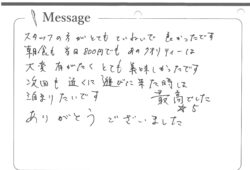 Message
スタッフの方がとてもていねいで 良かったです
朝食も 当日800円でも あのクオリティーは
大変 有がたく とても 美味しかったです
次回も 近くに 遊びに 来た時は
泊まりたいです 最高でした
☆5
ありがとう ございました